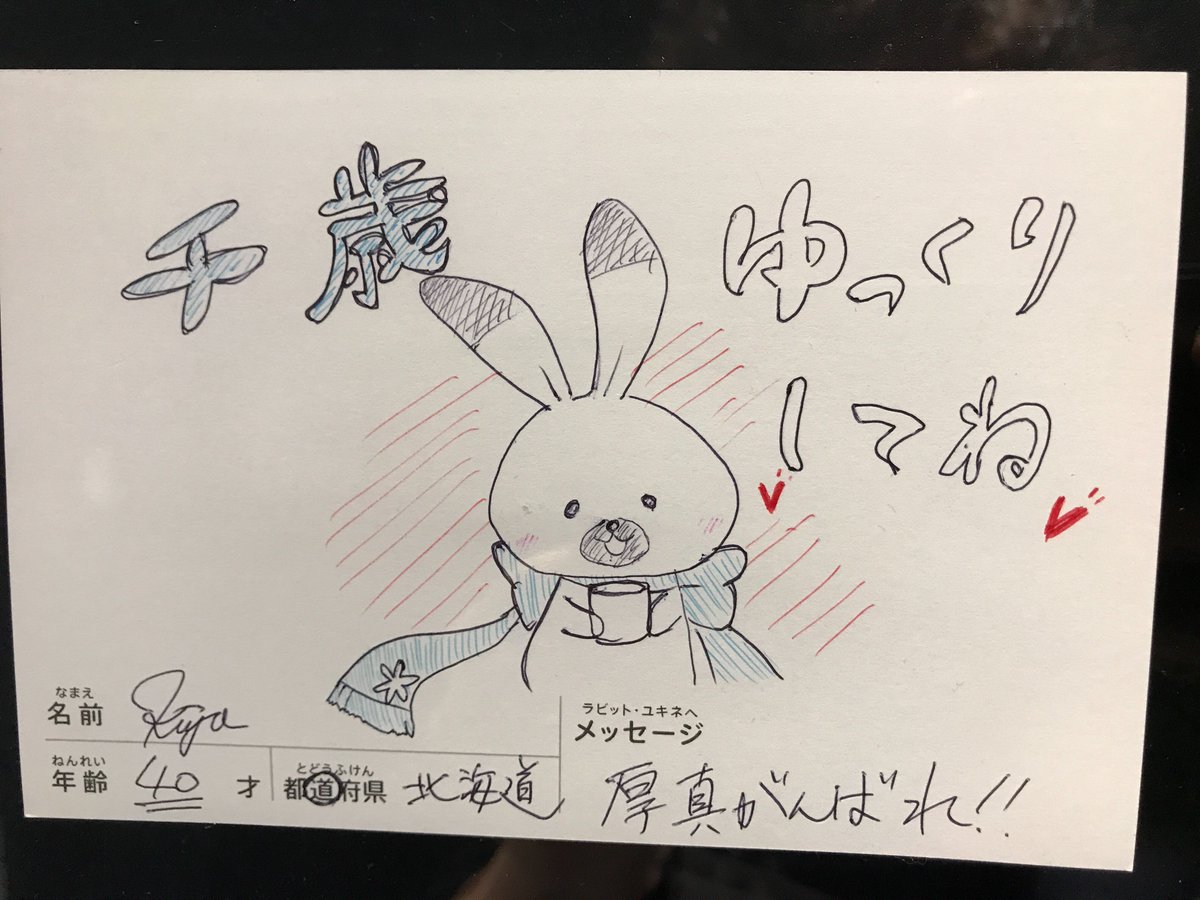 千歳
ゆっくり
してね
なまえ
名前
ねんれい
年齢 40 才
とどうふけん
都道府県 北海道
ラビット・ユキネへ
メッセージ
厚真がんばれ!!